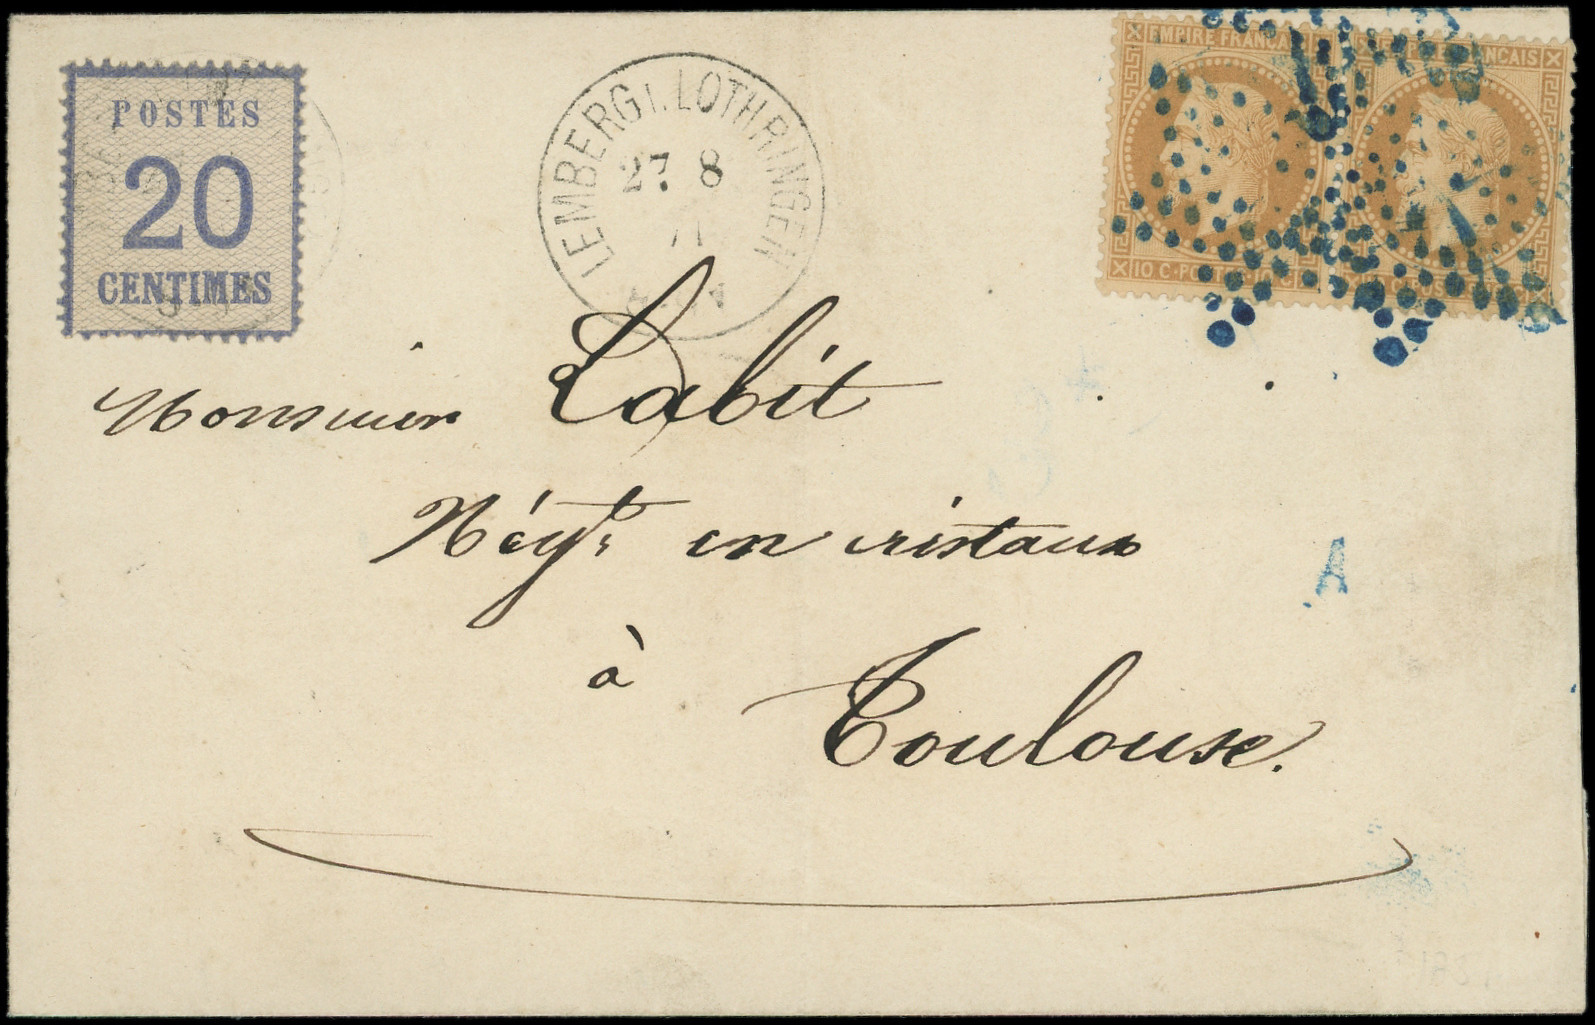 POSTES
20
CENTIMES
LEMBERG I. LOTHRINGEN
27 8
71
EMPIRE FRANÇAIS
10 C · POSTES · 10 C
Monsieur Labit
Négt. en cristaux
à
Toulouse.
A